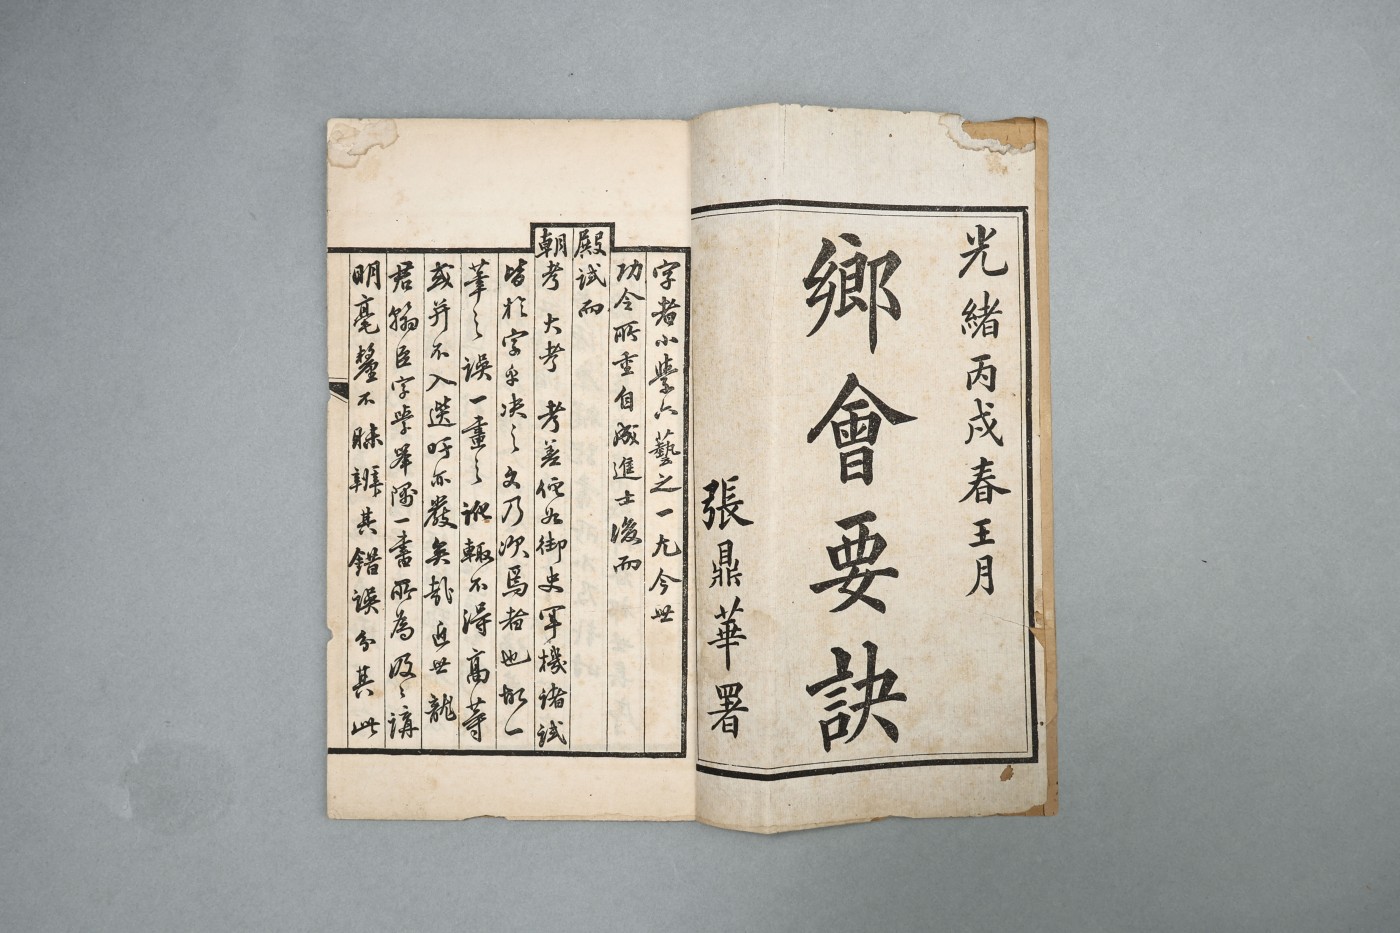 光緒丙戌春王月
鄉會要訣
張鼎華署
字者小學六藝之一尤今世
功令所重自成進士後而
殿試而
朝考 大考 考差便如御史軍機諸試
皆於字乎決之文乃次焉者也故一
筆之誤一畫之訛輒不得高等
或并不入選吁亦嚴矣哉近世龍
君翰臣字學舉隅一書所為汲汲講
明毫釐不昧辨其錯誤分其此